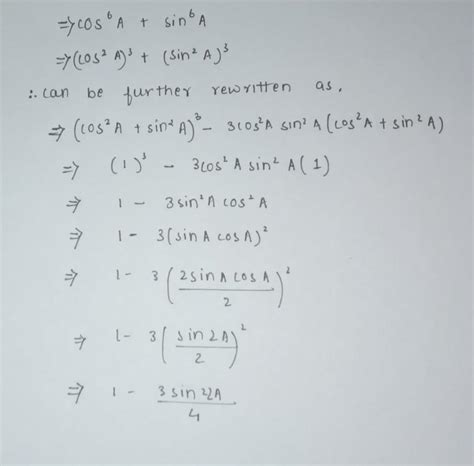 ⇒ cos⁶A + sin⁶A
⇒ (cos² A)³ + (sin² A)³
∴ can be further rewritten as,
⇒ (cos²A + sin²A)³ - 3cos²A sin²A (cos²A + sin²A)
⇒ (1)³ - 3cos²A sin²A (1)
⇒ 1 - 3sin²A cos²A
⇒ 1 - 3(sin A cos A)²
⇒ 1 - 3 (2sin A cos A / 2)²
⇒ 1 - 3 (sin 2A / 2)²
⇒ 1 - 3 sin 22A / 4